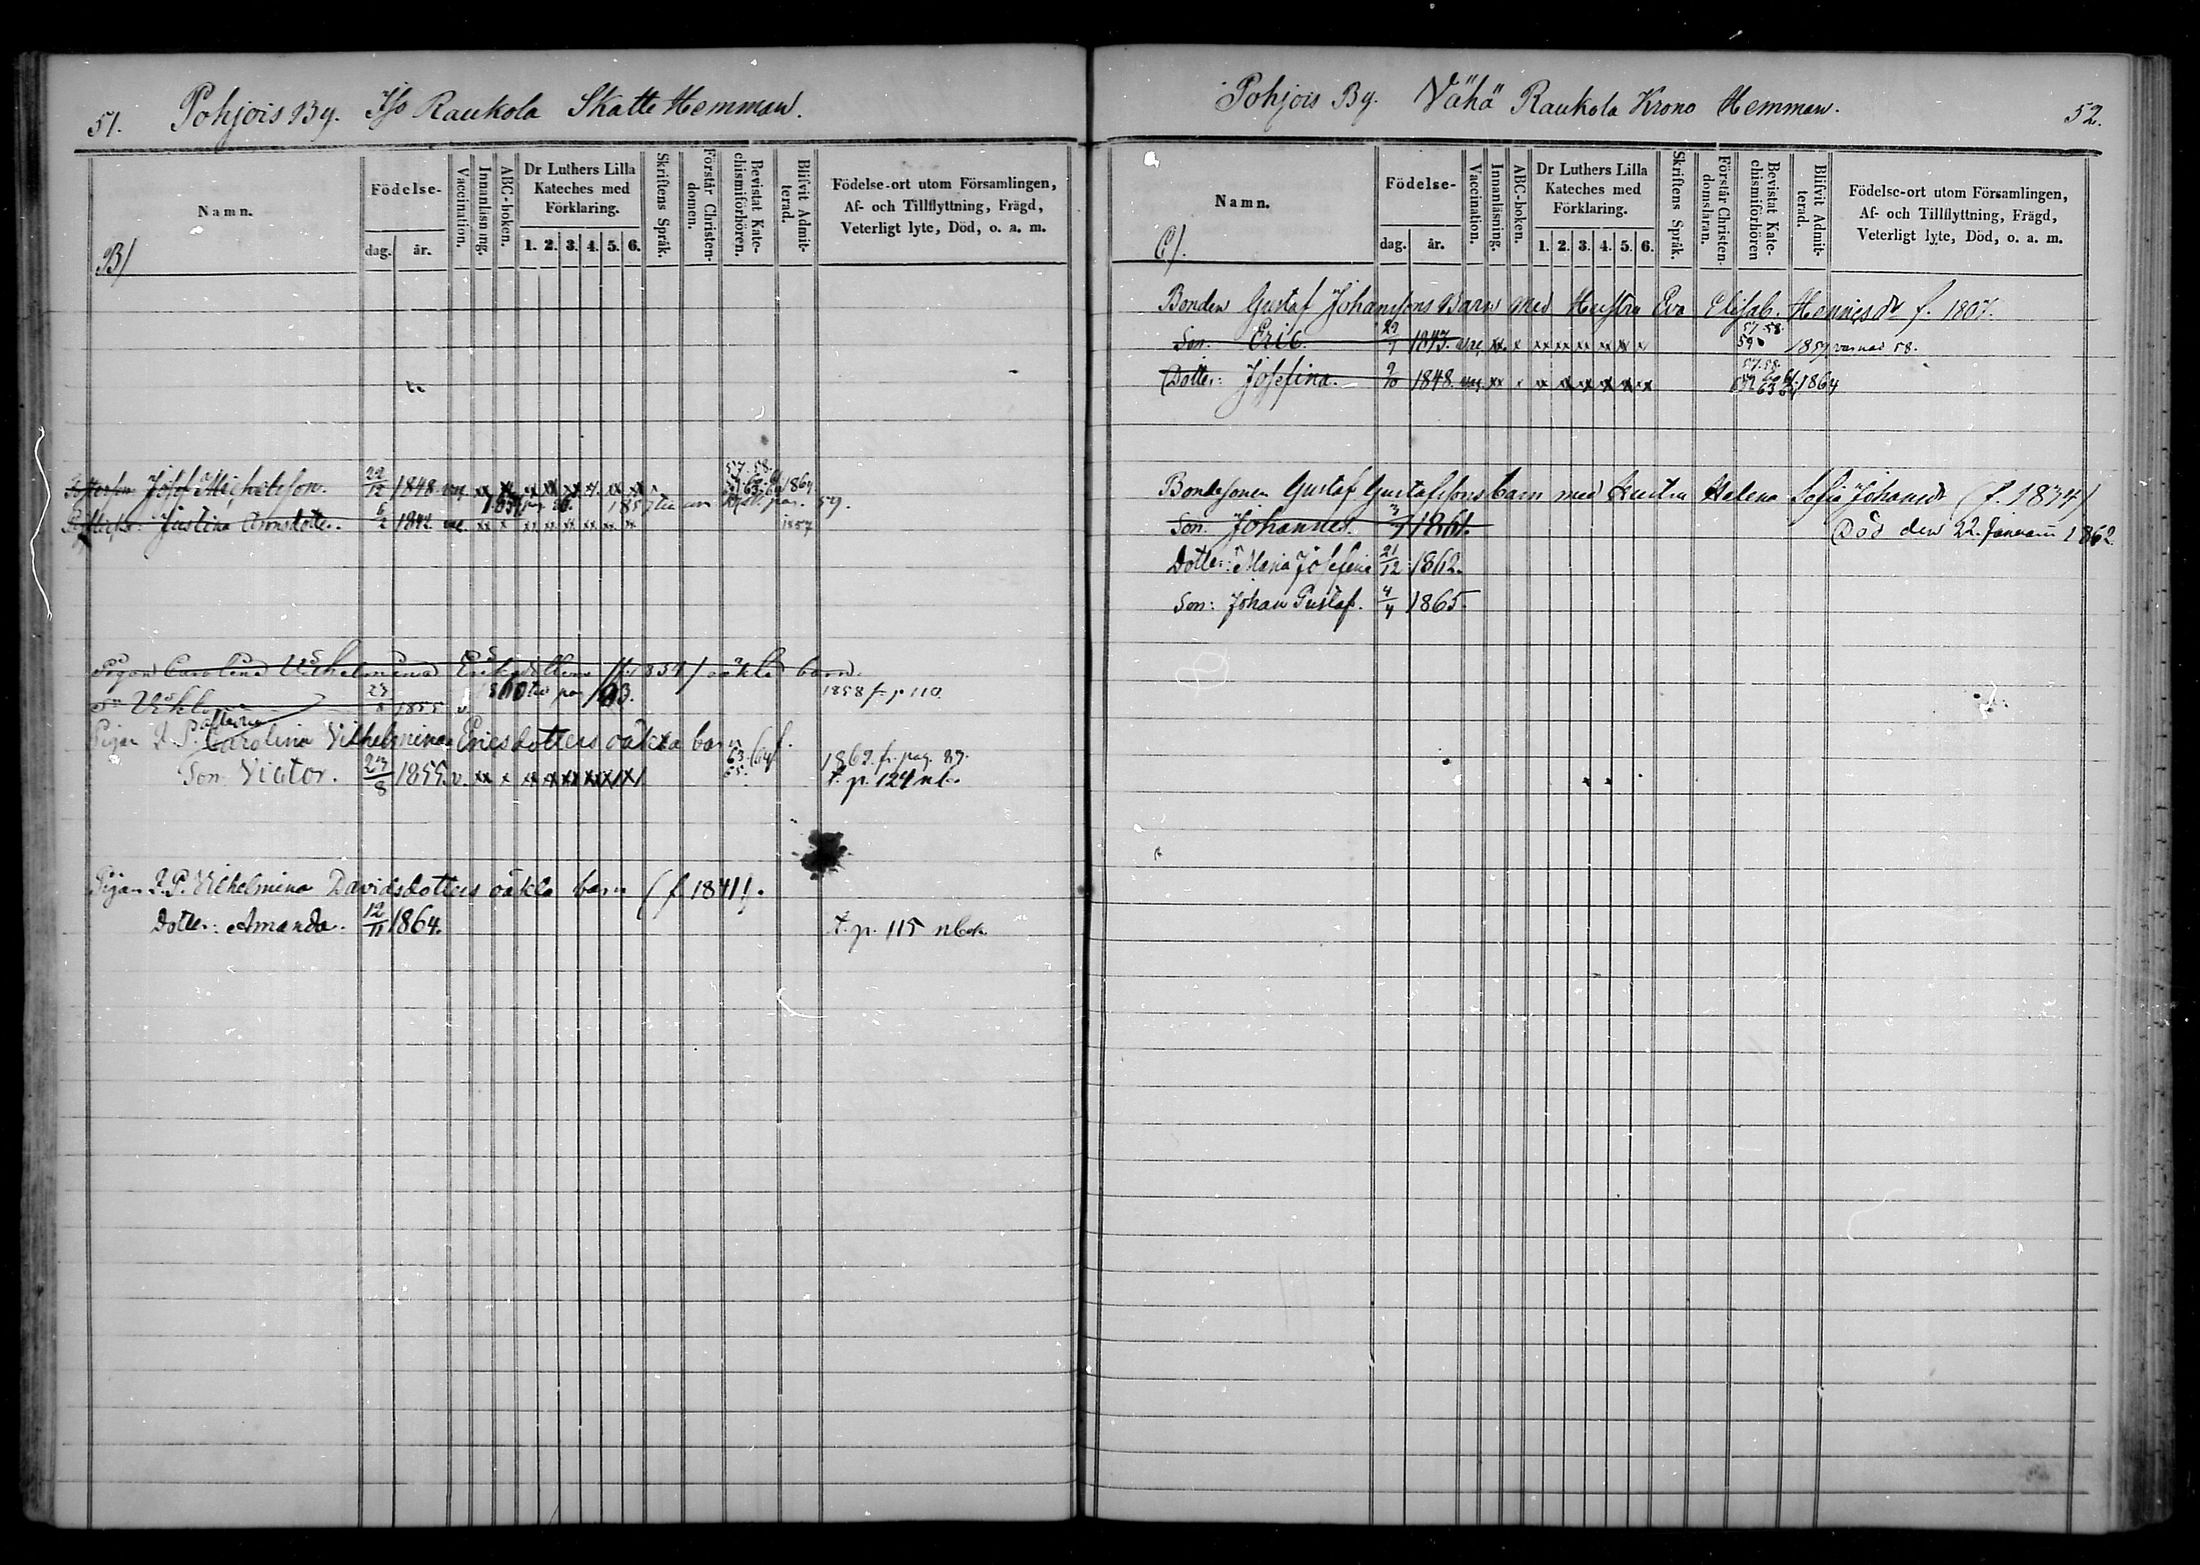 51. Pohjois By. Iso Raukola Skatte Hemman.
Namn.
B/
Födelse-
dag.
år.
Vaccination.
Innanläsning.
ABC-boken.
Dr Luthers Lilla
Kateches med
Förklaring.
1. 2. 3. 4. 5. 6.
Skriftens Språk.
Förstår Christen-
domen.
Bevistat Kate-
chismiförhören.
Blifvit Admit-
terad.
Födelse-ort utom Församlingen,
Af- och Tillflyttning, Frägd,
Veterligt lyte, Död, o. a. m.
57. 58.
Josef Michelsson. 22/12 1848 1864
59.
Justina 6/2 1842 1857
Pigan Carolina Vilhelmina oäkta barn
1855 1858 fr. p 110.
Pigan I. P. Carolina Vilhelmina Ericsdotters oäkta barn
63. 64
1862. fr. pag. 87.
Son Victor. 23/8 1855. v. 65. t. p. 124 nb.
Pigan I. P. Vilhelmina Davidsdotters oäkta barn (f 1841).
Dotter: Amanda. 12/11 1864. t. p. 115 nbok.
Pohjois By. Vähä Raukola Krono Hemman. 52.
Namn.
C/.
Födelse-
dag.
år.
Vaccination.
Innanläsning.
ABC-boken.
Dr Luthers Lilla
Kateches med
Förklaring.
1. 2. 3. 4. 5. 6.
Skriftens Språk.
Förstår Christen-
domslaran.
Bevistat Kate-
chismiförhören
Blifvit Admit-
terad.
Födelse-ort utom Församlingen,
Af- och Tillflyttning, Frägd,
Veterligt lyte, Död, o. a. m.
Bonden Gustaf Johanssons Barn med Hustru Eva Elisab. f. 1807.
57. 58.
Son: Eric. 1843. 59 1859
57. 58.
Dotter: Josefina. 1848. 1864
Bondesonen Gustaf Gustafssons barn med hustru Helena Sofia Johansdr (f. 1834)
Son: Johannes. 1861. Död den 22. Januarii 1862.
Dotter: Maria Josefina 21/12 1862.
Son: Johan Gustaf. 4/4 1865.